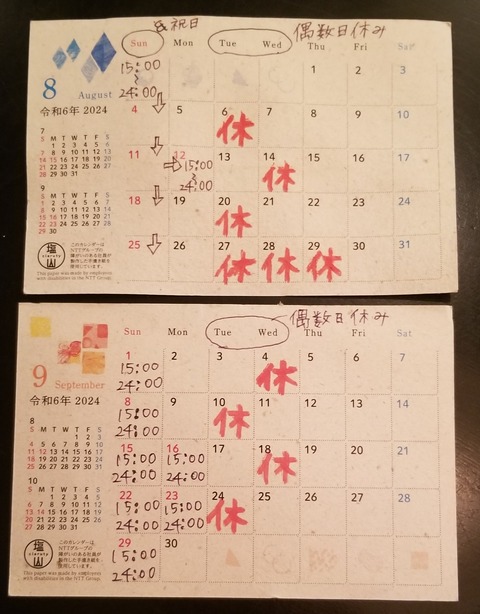 & 祝日
偶数日休み
Sun Mon Tue Wed Thu Fri Sat
15:00
〜
24:00
1 2 3
8 August
令和6年 2024
4 5 6 7 8 9 10
休
11 12 13 14 15 16 17
15:00
〜
24:00
休
18 19 20 21 22 23 24
休
25 26 27 28 29 30 31
休 休 休
7
S M T W T F S
1 2 3 4 5 6
7 8 9 10 11 12 13
14 15 16 17 18 19 20
21 22 23 24 25 26 27
28 29 30 31
9
S M T W T F S
1 2 3 4 5 6 7
8 9 10 11 12 13 14
15 16 17 18 19 20 21
22 23 24 25 26 27 28
29 30
このカレンダーは
NTTグループの
障がいのある社員が
製作した手漉き紙を
使用しています。
This paper was made by employees
with disabilities in the NTT Group.
偶数日休み
Sun Mon Tue Wed Thu Fri Sat
9 September
令和6年 2024
1 2 3 4 5 6 7
15:00
24:00
休
8 9 10 11 12 13 14
15:00
24:00
休
15 16 17 18 19 20 21
15:00 15:00
24:00 24:00
休
22 23 24 25 26 27 28
15:00 15:00
24:00 24:00
休
29 30
15:00
24:00
8
S M T W T F S
1 2 3
4 5 6 7 8 9 10
11 12 13 14 15 16 17
18 19 20 21 22 23 24
25 26 27 28 29 30 31
10
S M T W T F S
1 2 3 4 5
6 7 8 9 10 11 12
13 14 15 16 17 18 19
20 21 22 23 24 25 26
27 28 29 30 31
このカレンダーは
NTTグループの
障がいのある社員が
製作した手漉き紙を
使用しています。
This paper was made by employees
with disabilities in the NTT Group.